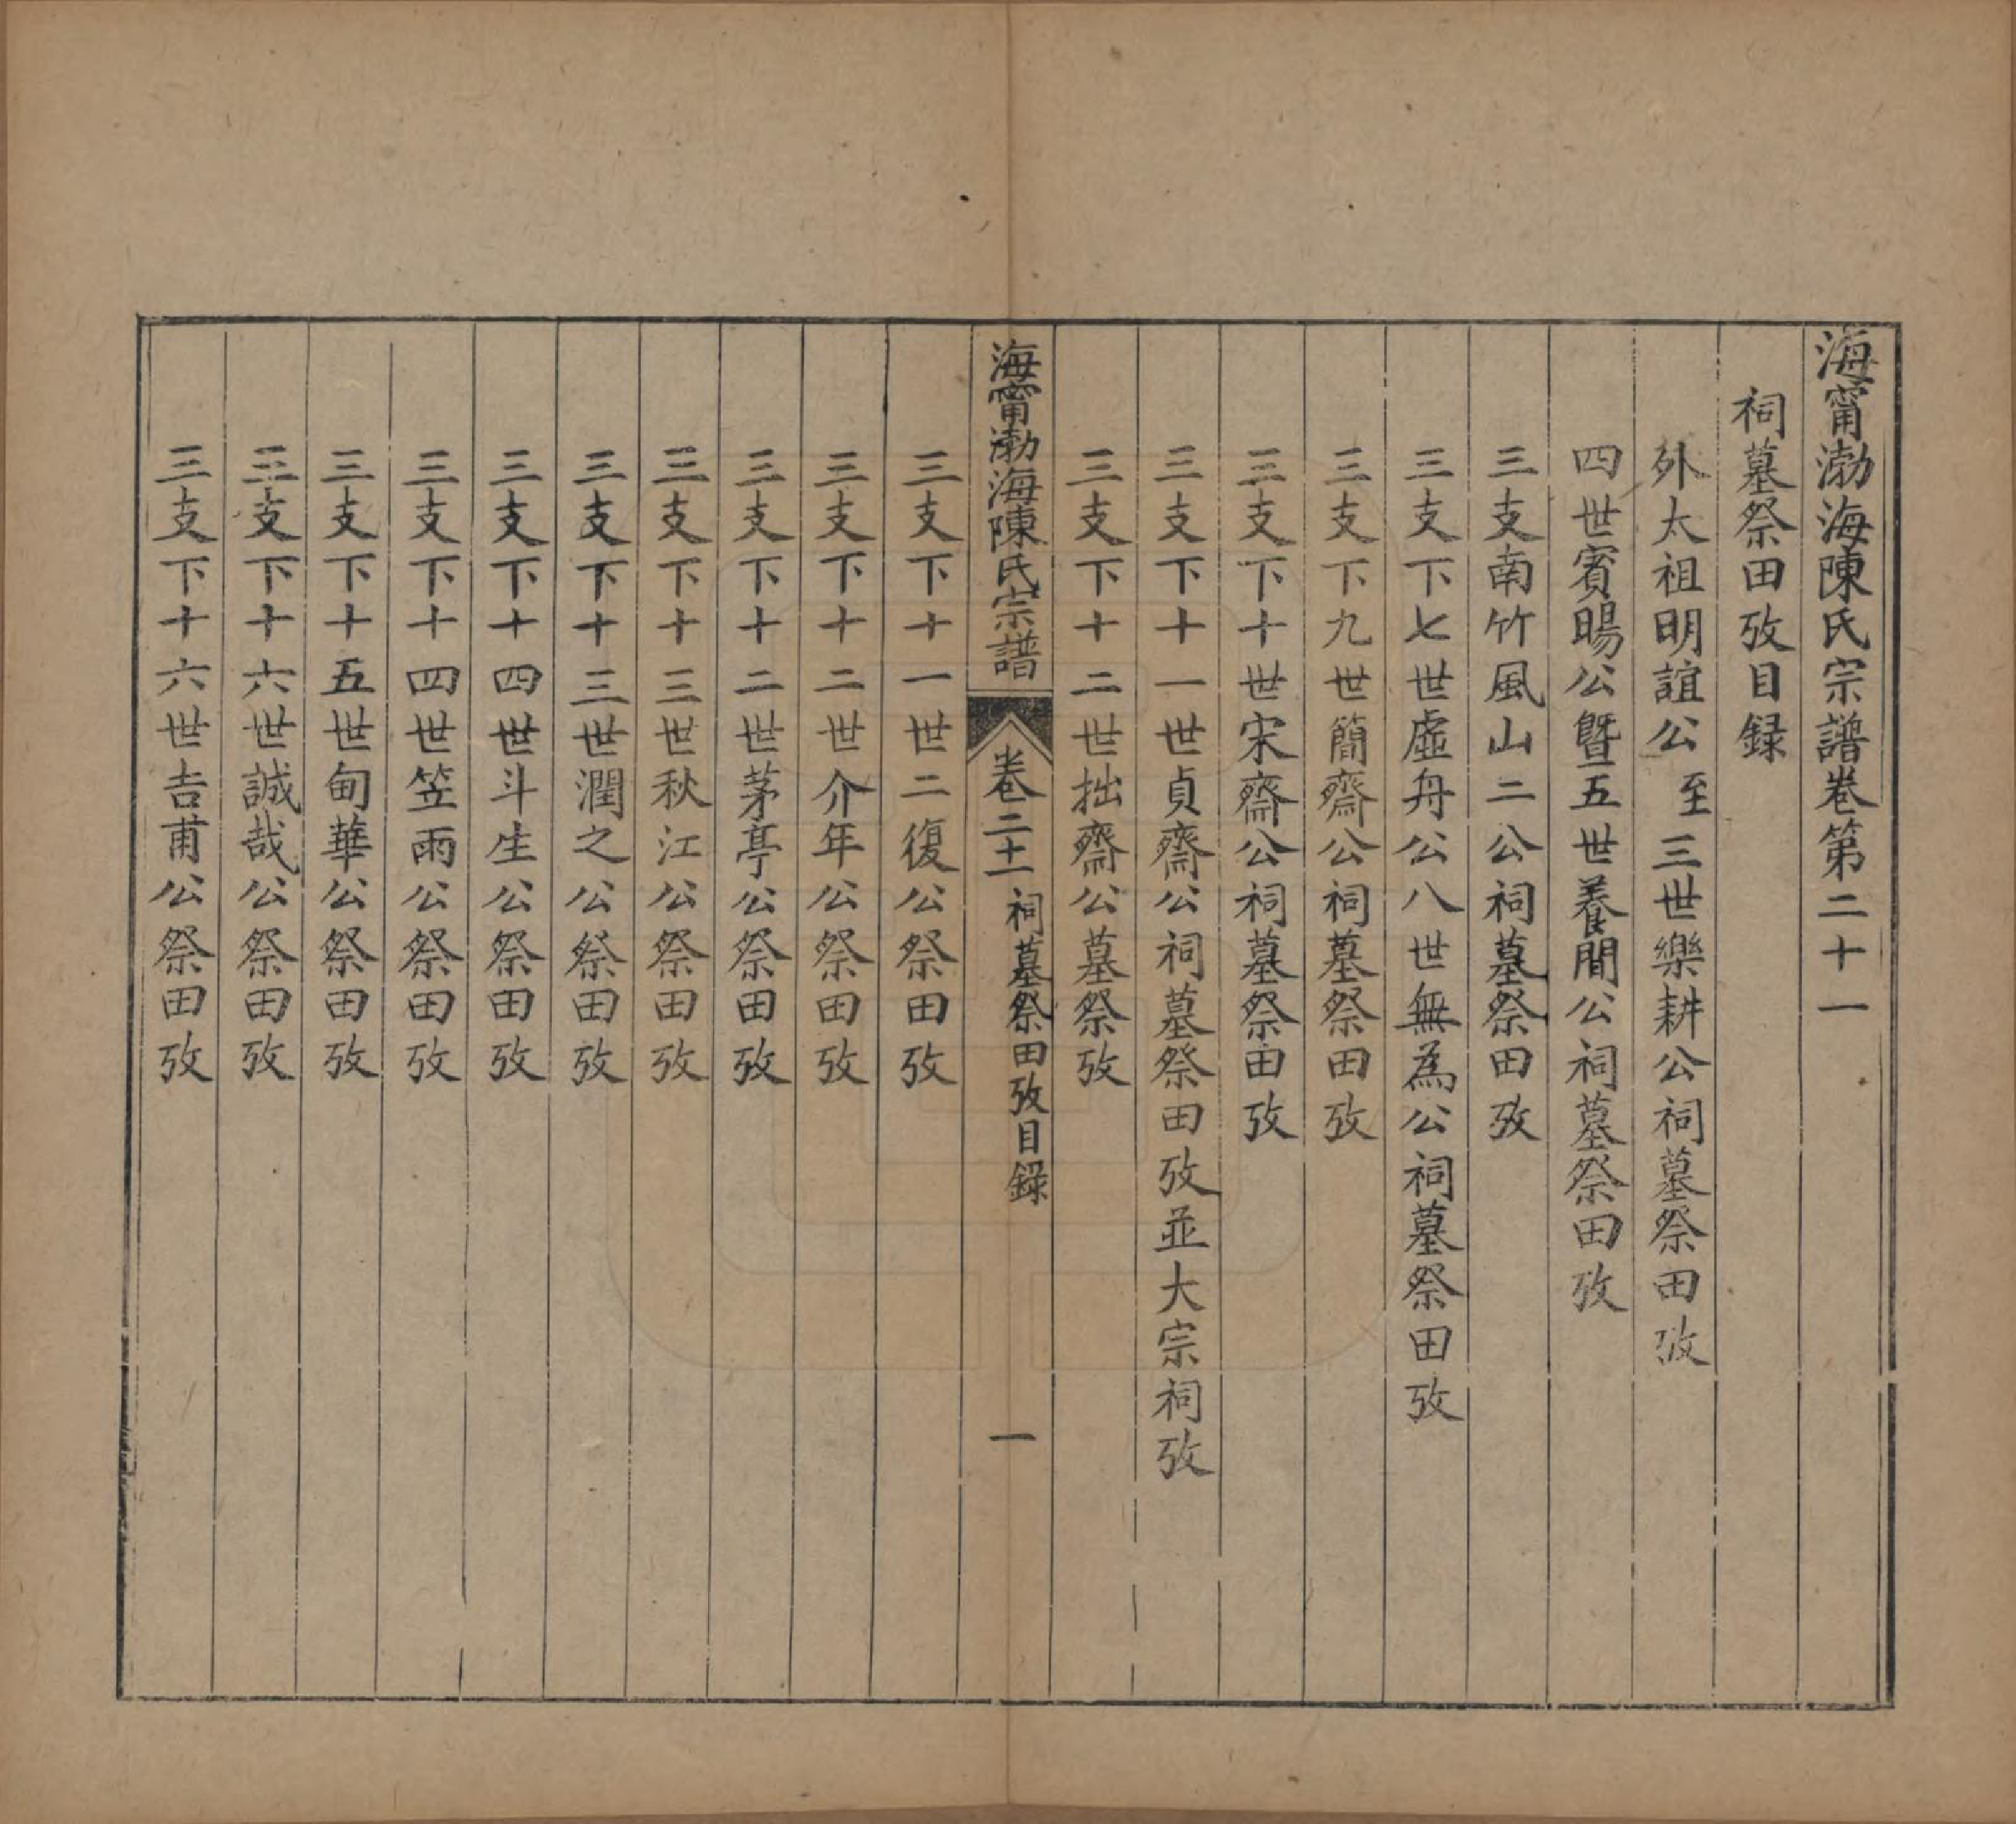 海甯渤海陳氏宗譜卷第二十一
祠墓祭田攷目録
外太祖明誼公至三世樂耕公祠墓祭田攷
四世賓暘公曁五世養閒公祠墓祭田攷
三支南竹風山二公祠墓祭田攷
三支下七世虛舟公八世無為公祠墓祭田攷
三支下九世簡齋公祠墓祭田攷
三支下十世宋齋公祠墓祭田攷
三支下十一世貞齋公祠墓祭田攷並大宗祠攷
三支下十二世拙齋公墓祭攷
海甯渤海陳氏宗譜 卷二十一 祠墓祭田攷目録 一
三支下十一世二復公祭田攷
三支下十二世介年公祭田攷
三支下十二世茅亭公祭田攷
三支下十三世秋江公祭田攷
三支下十三世潤之公祭田攷
三支下十四世斗生公祭田攷
三支下十四世笠雨公祭田攷
三支下十五世甸華公祭田攷
三支下十六世誠哉公祭田攷
三支下十六世吉甫公祭田攷